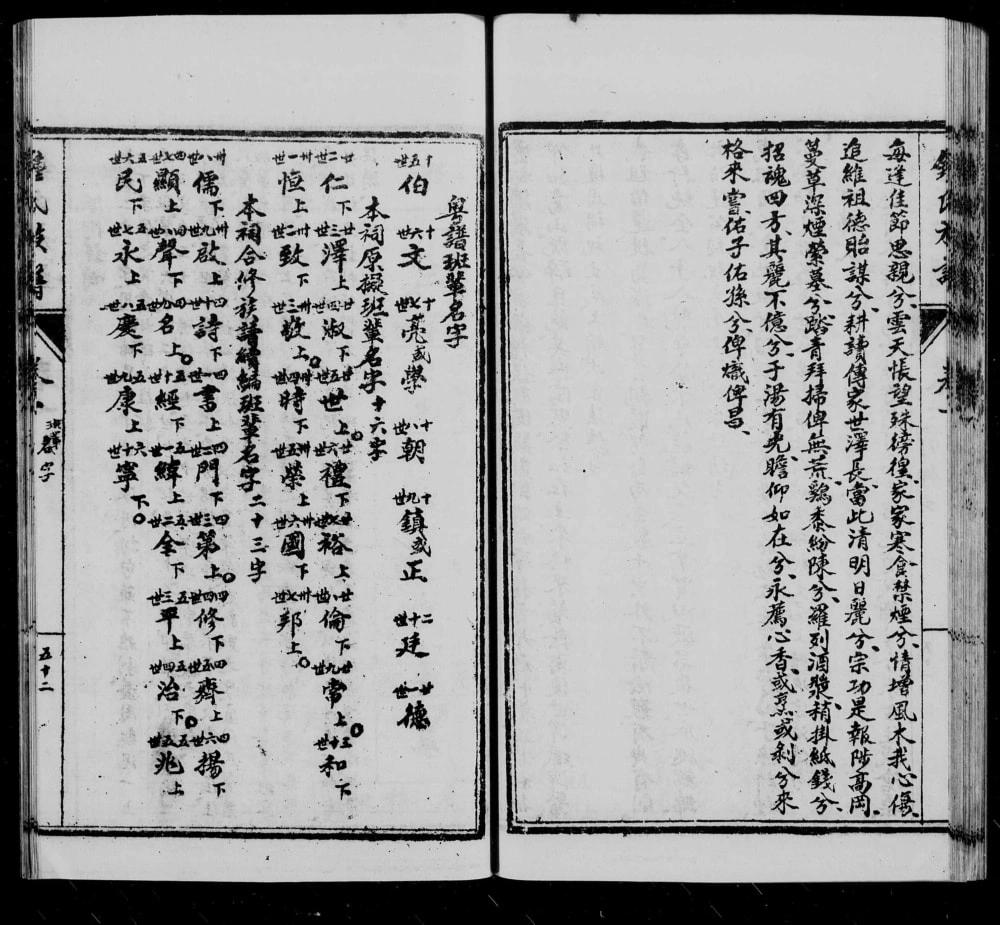 每逢佳節思親兮、雲天悵望殊徬徨、家家寒食禁煙兮、情增風木我心傷、
追維祖德貽謀兮、耕讀傳家世澤長、當此清明日麗兮、宗功是報陟高岡、
蔓草深煙縈墓兮、踏青拜掃俾無荒、雞黍紛陳兮、羅列酒漿、稍掛紙錢兮、
招魂四方、其麗不億兮、于湯有光、瞻仰如在兮、永薦心香、或烹或剝兮、來
格來嘗、佑子佑孫兮、俾熾俾昌、
粵譜班輩名字
十五世伯 十六世文 十七世亮或學 十八世朝 十九世鎮或正 二十世廷 廿一世德
本祠原擬班輩名字十六字
廿二世仁下 廿三世澤上 廿四世淑下 廿五世世上。 廿六世禮下 廿七世裕上 廿八世倫下 廿九世常上。 三十世和下
卅一世恒上 卅二世致下 卅三世敦上。 卅四世時下 卅五世榮上 卅六世國下 卅七世邦上。
本祠合修族譜續編班輩名字二十三字
卅八世儒下 卅九世啟上 四十世詩下 四一世書上 四二世門下 四三世第上。 四四世修下 四五世齊上 四六世揚下
四七世顯上 四八世聲下 四九世名上。 五十世經下 五一世緯上 五二世全下 五三世平上 五四世治下。 五五世兆上
五六世民下 五七世永上 五八世慶下 五九世康上 六十世寧下。
五十二